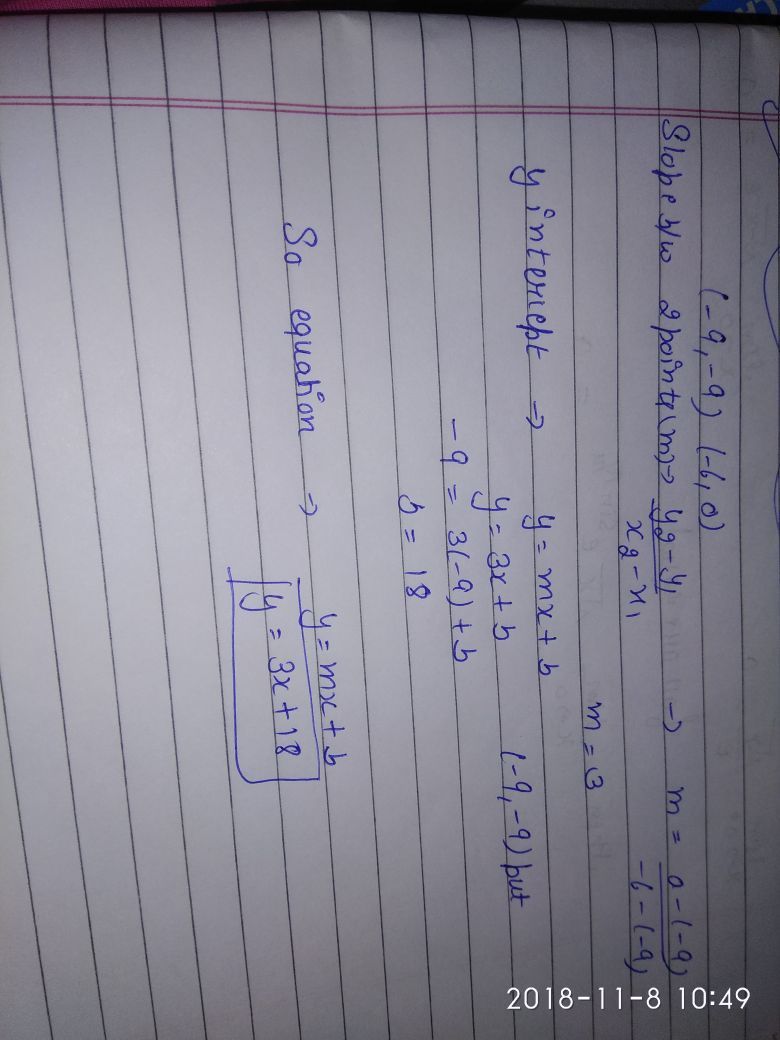 (-9,-9) (-6,0)
Slope b/w 2 points(m) → y2-y1 / x2-x1 → m = 0-(-9) / -6-(-9)
m = 3
y intercept → y = mx + b
y = 3x + b (-9,-9) put
-9 = 3(-9) + b
b = 18
So equation → y = mx + b
y = 3x + 18
2018-11-8 10:49